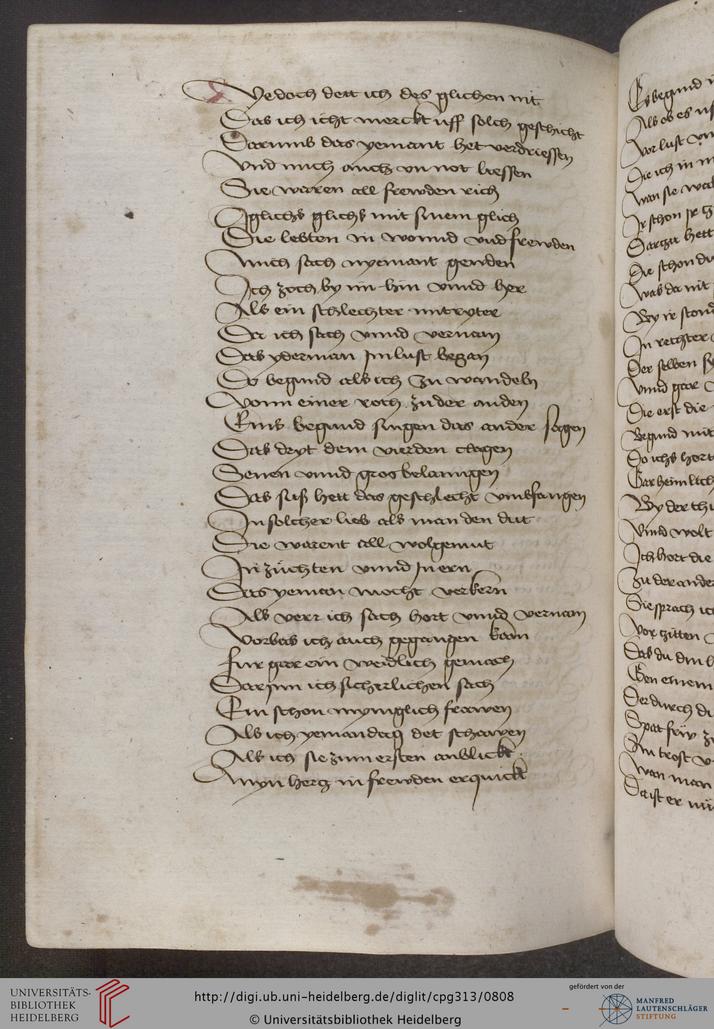 Yedoch dett ich des glichen nit
Das ich icht merckt uff solch geschicht
Darumb das yemant het verdriessen
Vnd mich auch vn not liessen
Sie waren all frewden rich
Iglichs glichs mit sinem glich
Die lebten in wonnd vnd frewden
Mich sach nyemant
Ich zoch by im hin vnnd her
Als ein schlechter mitryter
Da ich sach vnnd vernam
Das yderman sin lust began
Do begund als ich zu wandeln
Vonn einer roth zu der anden
Eins begund singen das ander sagen
Das dryt dem vierden clagen
Senen vnnd gros belanngen
Das suß hett das geschlecht vmbfangen
In solcher lieb als man den dut
Die warent all wolgemut
In züchten vnnd in ern
Das yeman mocht verkern
Als verr ich sach hort vnnd vernam
Vorbas ich auch gegangen kam
Fur gar ein weidlich gemach
Darjnn ich sicherlichen sach
Ein schon mynniglich frawen
Als ich yeman dag det schawen
Als ich sie zum ersten anblickt
Myn hertz in frewden erquickt
Es begund
Als ob es
Vor lust
Die ich in
Wan sie
Ir schon
Hett
Die schon
Was da nit
By ir
In rechter
Der selben
Vnnd gar
Die erst die
Begund mit
Do ichs hort
Gar heimlich
By der
Vnnd wolt
Ich hort die
Zu der ander
Sie sprach ich
Vor zitten
Das du din
Den einem
Der durch
Spat frw
Im trost
Wan man
Da ist er
UNIVERSITÄTS-
BIBLIOTHEK
HEIDELBERG
http://digi.ub.uni-heidelberg.de/diglit/cpg313/0808
© Universitätsbibliothek Heidelberg
gefördert von der
MANFRED
LAUTENSCHLÄGER
STIFTUNG